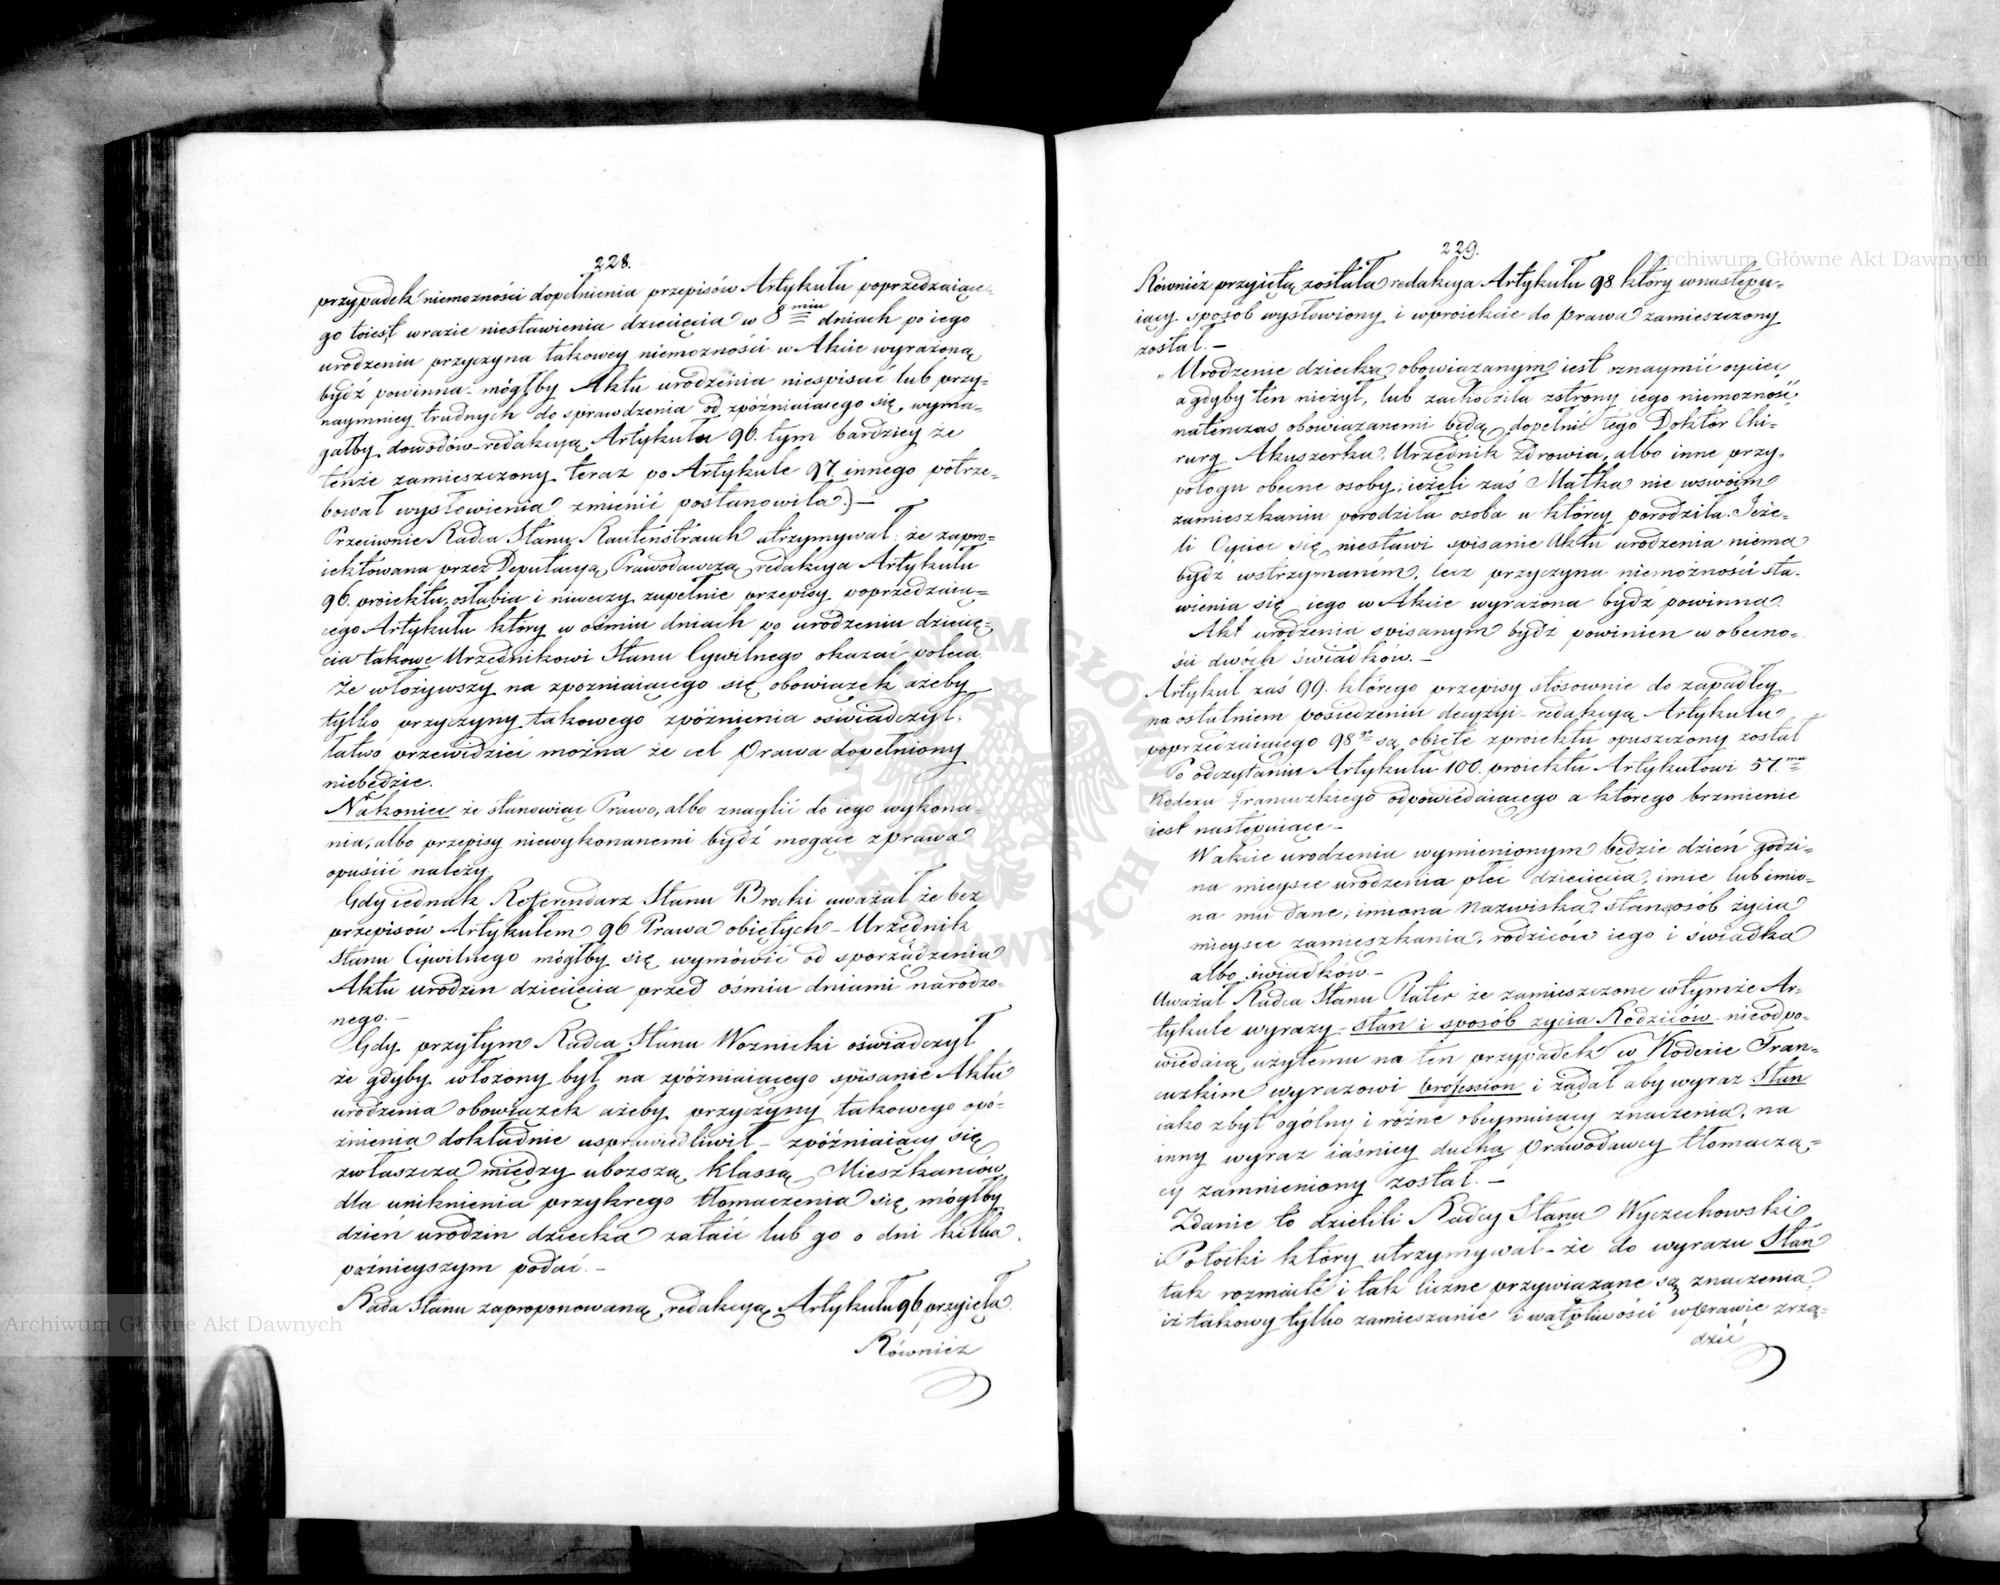 228.
przypadek niemożności dopełnienia przepisów Artykułu poprzedzaiące-
go toiest w razie niestawienia dziecięcia w 8 miu dniach po iego
urodzeniu przyczyna takowey niemożności w Akcie wyrażoną
bydź powinna mógłby Aktu urodzenia niespisać lub przy-
naymniey trudnych do sprawdzenia od zpóźniaiącego się wyma-
gałby dowodów redakcyą Artykułu 96. tym bardziey że
tenże zamieszczony teraz po Artykule 97 innego potrze-
bował wysłowienia zmienić postanowiła.) —
Przeciwnie Radca Stanu Rautenstrauch utrzymywał: że zapro-
iektowana przez Deputacyą Prawodawczą redakcya Artykułu
96. proiektu, osłabia i niweczy zupełnie przepisy poprzedzaią-
cego Artykułu który w ośmiu dniach po urodzeniu dziecię-
cia takowe Urzędnikowi Stanu Cywilnego okazać poleca.
że włożywszy na zpozniaiącego się obowiązek ażeby
tylko przyczyny takowego zpóźnienia oświadczył,
łatwo przewidzieć można że cel Prawa dopełniony
niebędzie.
Nakoniec że stanowiąc Prawo, albo znaglić do iego wykona-
nia, albo przepisy niewykonanemi bydź mogące z prawa
opuścić należy.
Gdy iednak Referendarz Stanu Brocki uważał że bez
przepisów Artykułem 96 Prawa obiętych – Urzędnik
Stanu Cywilnego mógłby się wymówić od sporządzenia
Aktu urodzin dziecięcia przed ośmiu dniami narodzo-
nego. –
Gdy przytym Radca Stanu Woznicki oświadczył
że gdyby włożony był na zpóźniaiącego spisanie Aktu
urodzenia obowiązek ażeby przyczyny takowego opó-
źnienia dokładnie usprawiedliwił – zpóźniaiący się
zwłaszcza między uboższą klassą Mieszkańców
dla uniknienia przykrego tłomaczenia się mógłby
dzień urodzin dziecka zataić lub go o dni kilka
poźnieyszym podać. –
Rada Stanu zaproponowaną redakcyą Artykułu 96 przyięła.
Równiez
229.
Równiéż przyiętą została redakcya Artykułu 98 który w następu-
iący sposob wysłowiony i w proiekcie do prawa zamieszczony
został. –
„Urodzenie dziecka obowiązanym iest oznaymić oyciec
a gdyby ten nieżył, lub zachodziła z strony iego niemożność,
natenczas obowiązanemi będą dopełnić tego Doktór Chi-
rurg Akuszerka Urzędnik zdrowia, albo inne przy
połogu obecne osoby; ieżeli zaś Matka nie w swoim
zamieszkaniu porodziła osoba u którey porodziła. Jeże-
li Oyciec się niestawi spisanie Aktu urodzenia niema
bydź wstrzymaném, lecz przyczyna niemożności sta-
wienia się iego w Akcie wyrażona bydź powinna.
Akt urodzenia spisanym bydź powinien w obecno-
ści dwóch świadków. –
Artykuł zaś 99. którego przepisy stosownie do zapadłey
na ostatniem posiedzeniu decyzyi – redakcyą Artykułu
poprzedzaiącego 98go są obięte z proiektu opuszczony został
Po odczytaniu Artykułu 100. proiektu Artykułowi 57.mu
Kodexu Francuzkiego odpowiedaiącego a którego brzmienie
iest następuiące –
W akcie urodzenia wymienionym będzie dzień godzi-
na mieysce urodzenia płeć dziecięcia, imie lub imio-
na mu dane; imiona Nazwiska, stan, sposób życia
mieysce zamieszkania, rodziców iego i świadka
albo świadków. –
Uważał Radca Stanu Plater że zamieszczone w tymże Ar-
tykule wyrazy – stan i sposób życia Rodziców – nieodpo-
wiedaią użytemu na ten przypadek w Kodexie Fran-
cuzkim wyrazowi profession i żądał aby wyraz Stan
iako zbyt ogólny i różne obeymuiący znaczenia, na
inny wyraz iaśniey ducha Prawodawcy tłomaczą-
cy zamnieniony został. –
Zdanie to dzielili Radcy Stanu Wyczechowski
i Potocki który utrzymywał – że do wyrazu Stan
tak rozmaite i tak liczne przywiązane są znaczenia
iż takowy tylko zamieszanie i wątpliwości w prawie zrzą-
dzić
Archiwum Główne Akt Dawnych
Archiwum Główne Akt Dawnych
ARCHIWUM GŁÓWNE AKT DAWNYCH